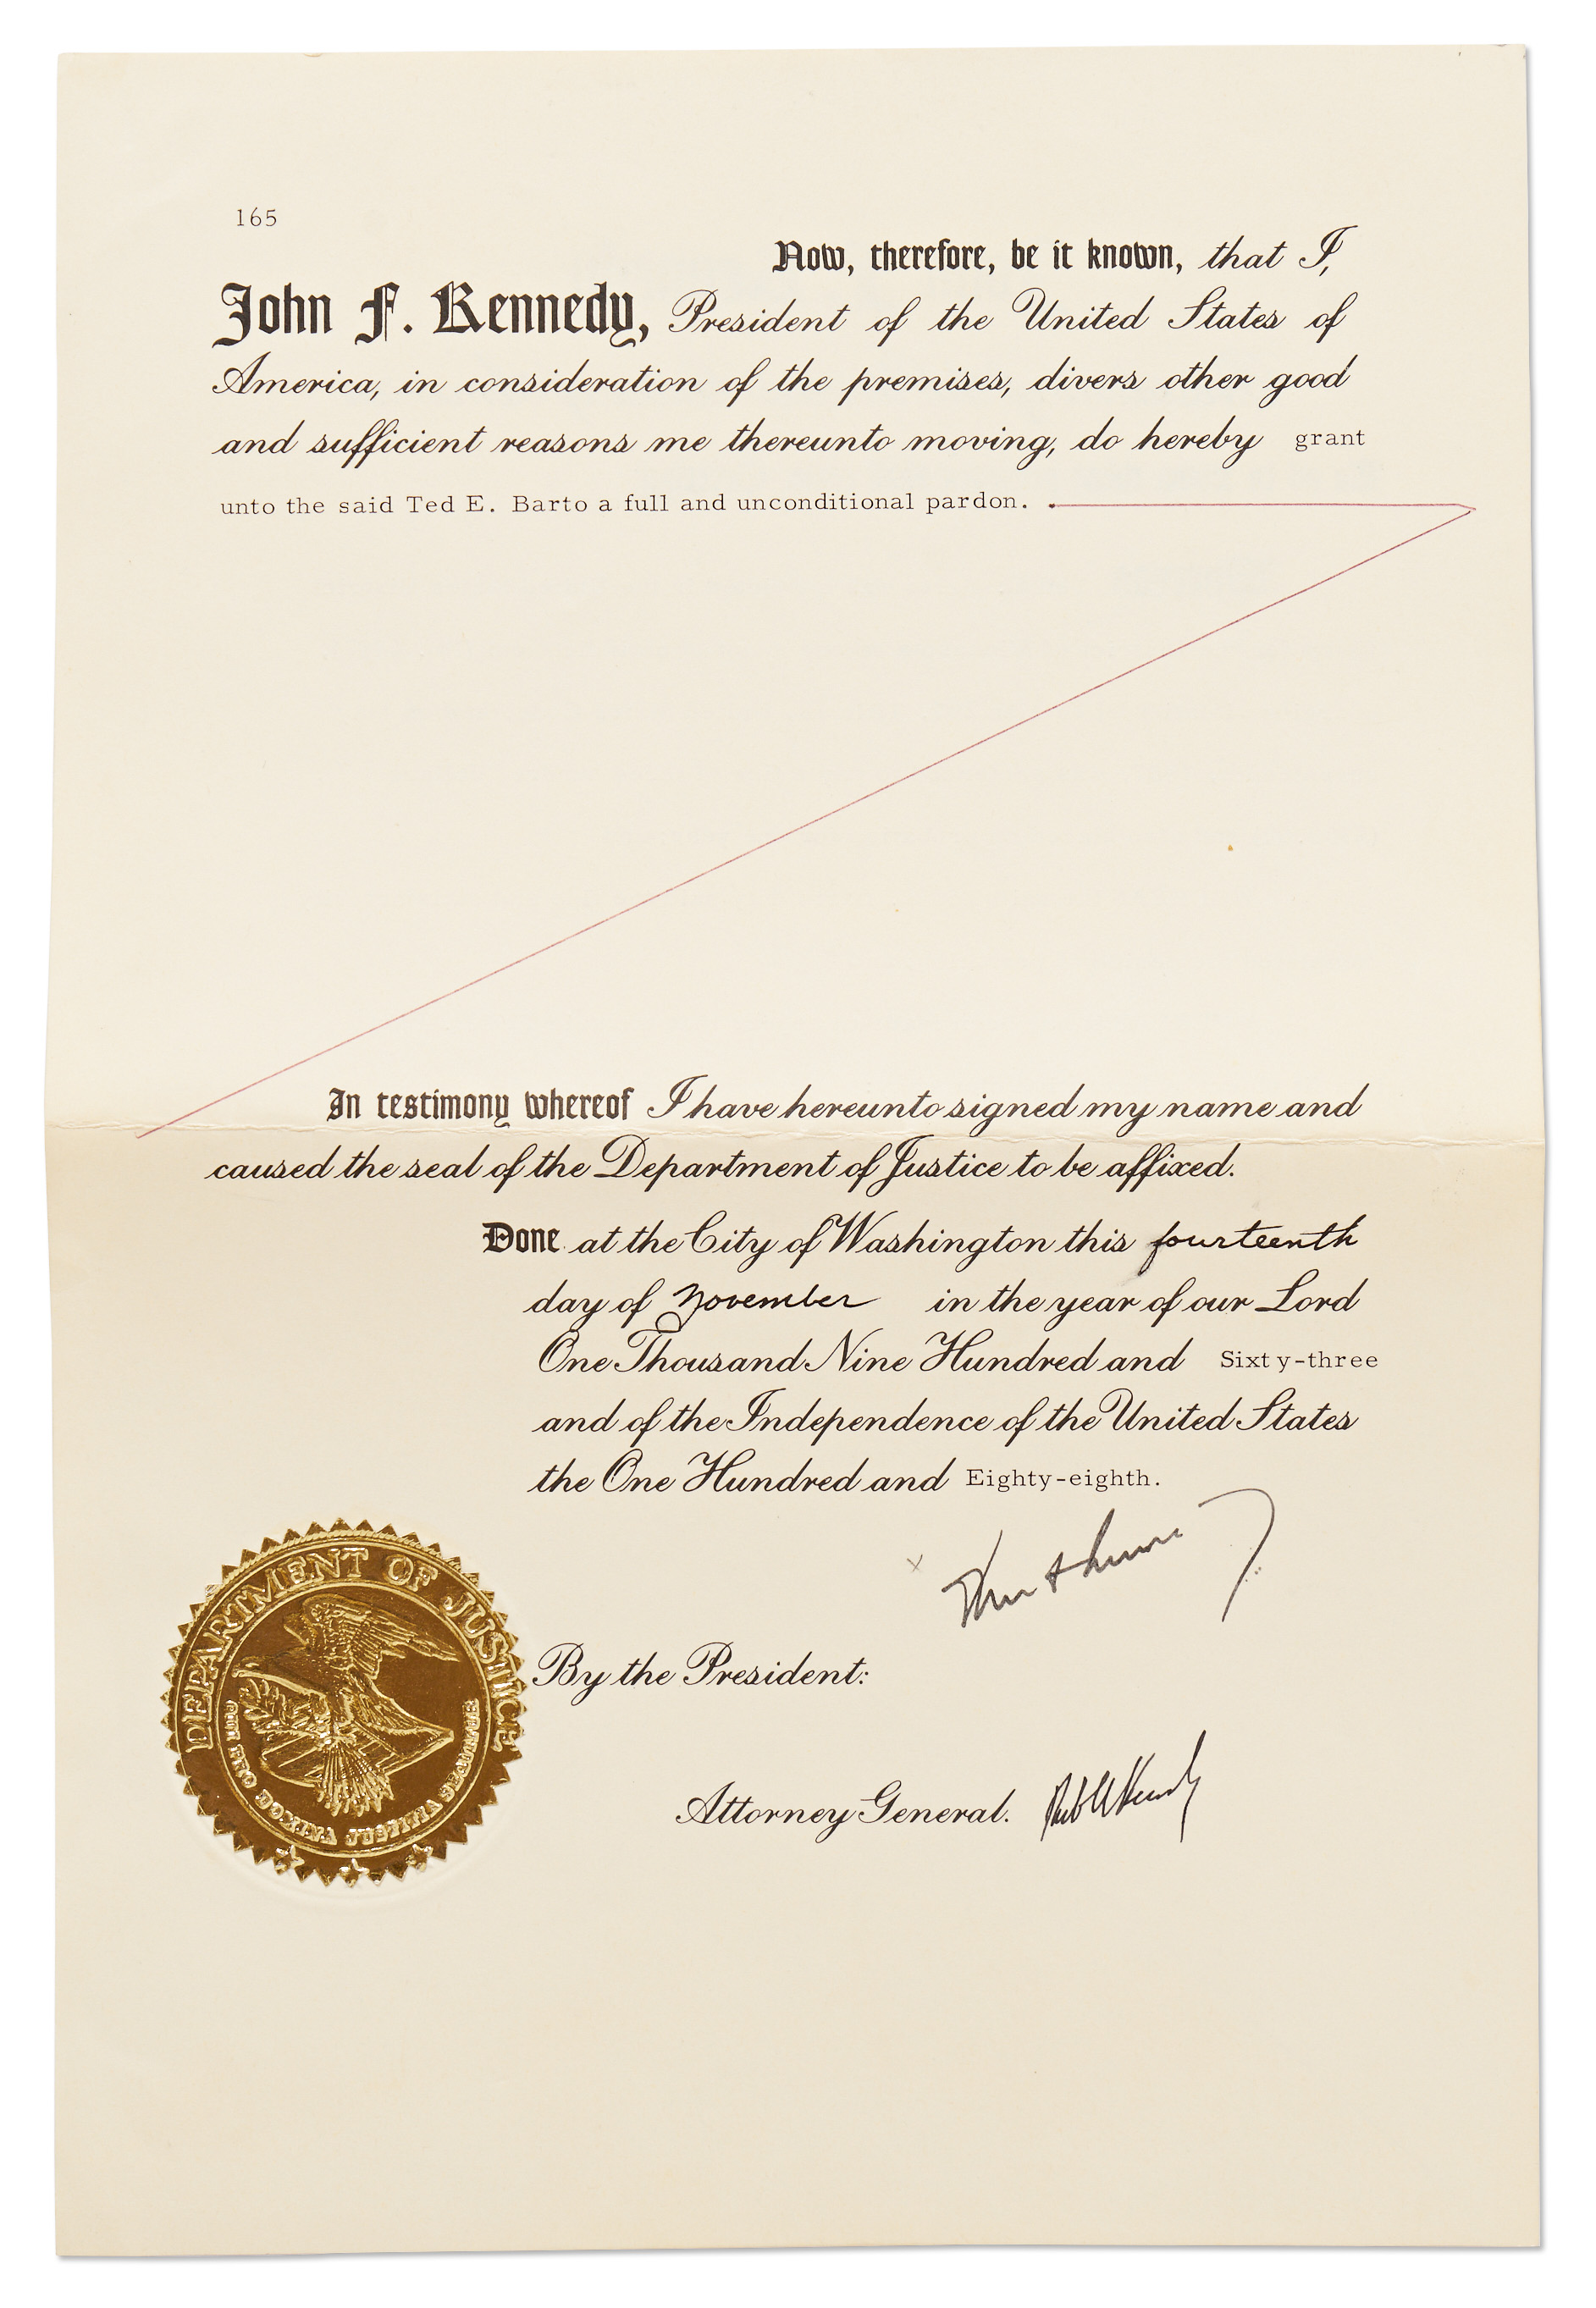 165
Now, therefore, be it known, that I,
John F. Kennedy, President of the United States of
America, in consideration of the premises, divers other good
and sufficient reasons me thereunto moving, do hereby grant
unto the said Ted E. Barto a full and unconditional pardon.
In testimony whereof I have hereunto signed my name and
caused the seal of the Department of Justice to be affixed.
Done at the City of Washington this fourteenth
day of November in the year of our Lord
One Thousand Nine Hundred and Sixty-three
and of the Independence of the United States
the One Hundred and Eighty-eighth.
x
By the President:
Attorney General.
DEPARTMENT OF JUSTICE
QUI PRO DOMINA JUSTITIA SEQUITUR